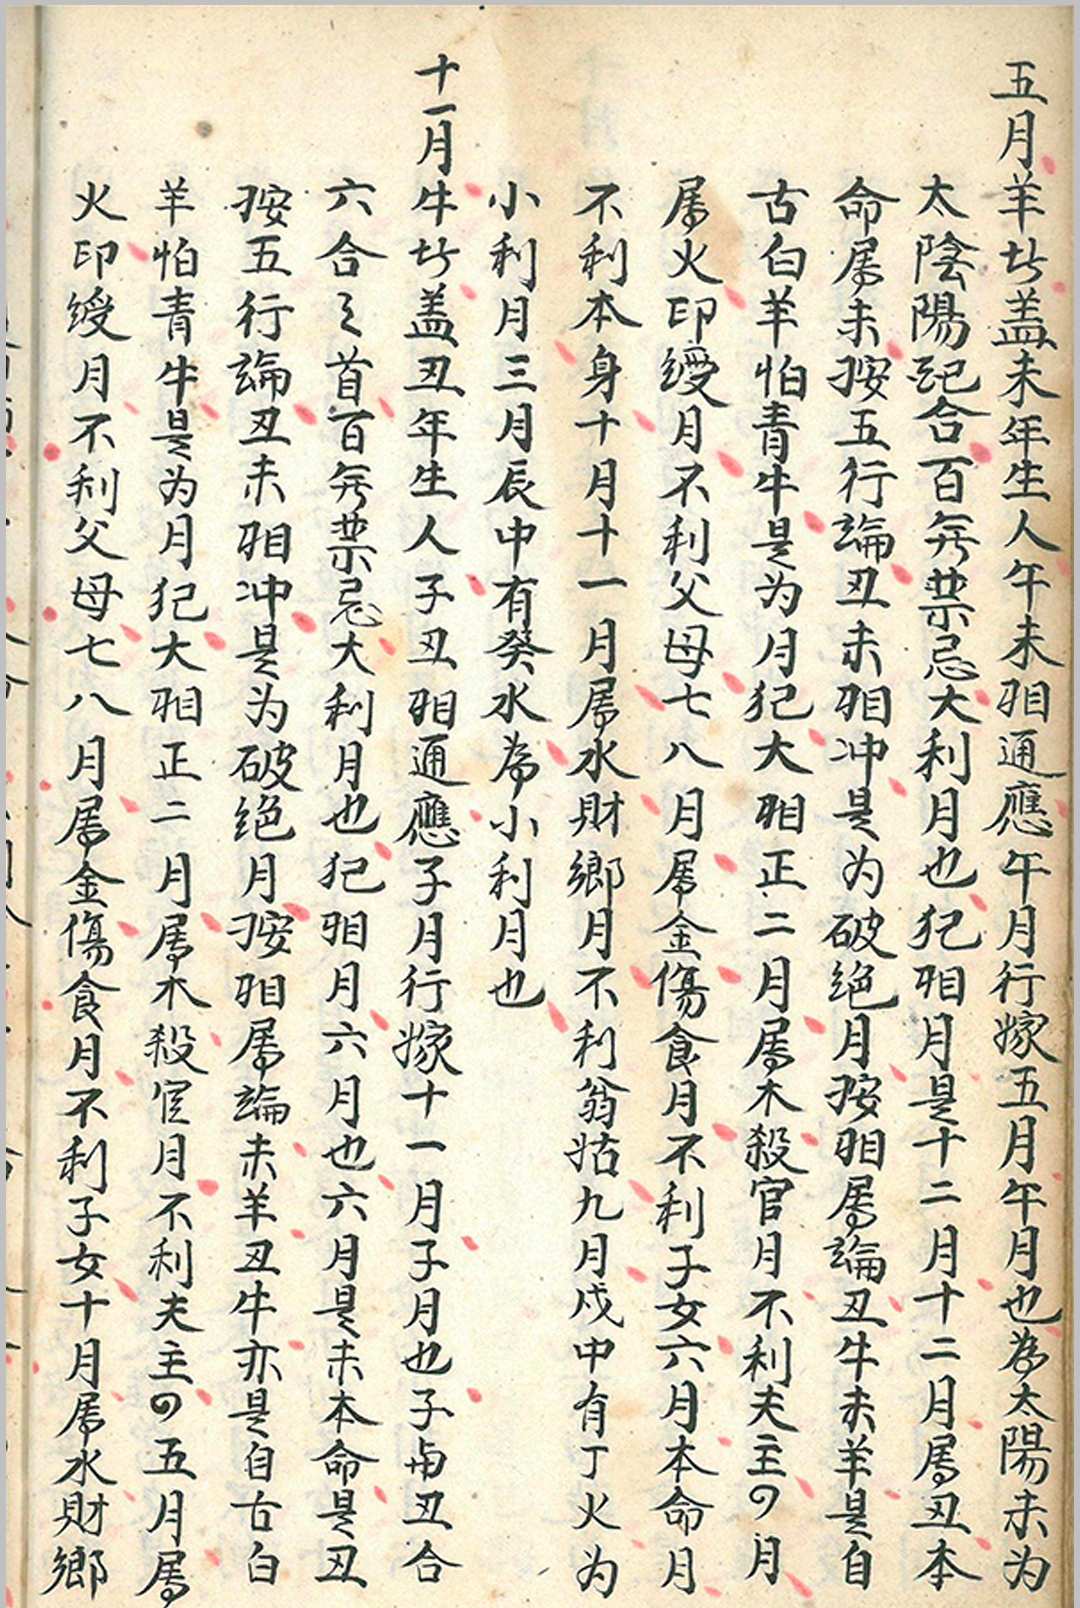 五月羊廿盖未年生人午未相通應午月行嫁五月午月也為太陽未为
太陰陽纪合百無禁忌大利月也犯相月是十二月十二月属丑本
命属未按五行論丑未相冲是为破绝月按相属論丑牛未羊是自
古白羊怕青牛是为月犯大相正二月属木殺官月不利夫主四月
属火印綬月不利父母七八月属金傷食月不利子女六月本命月
不利本身十月十一月属水財鄉月不利翁姑九月戌中有丁火为
小利月三月辰中有癸水為小利月也
十一月牛廿盖丑年生人子丑相通應子月行嫁十一月子月也子与丑合
六合之首百無禁忌大利月也犯相月六月也六月是未本命是丑
按五行論丑未相冲是为破绝月按相属論未羊丑牛亦是自古白
羊怕青牛是为月犯大相正二月属木殺官月不利夫主四五月属
火印綬月不利父母七八月属金傷食月不利子女十月属水財鄉